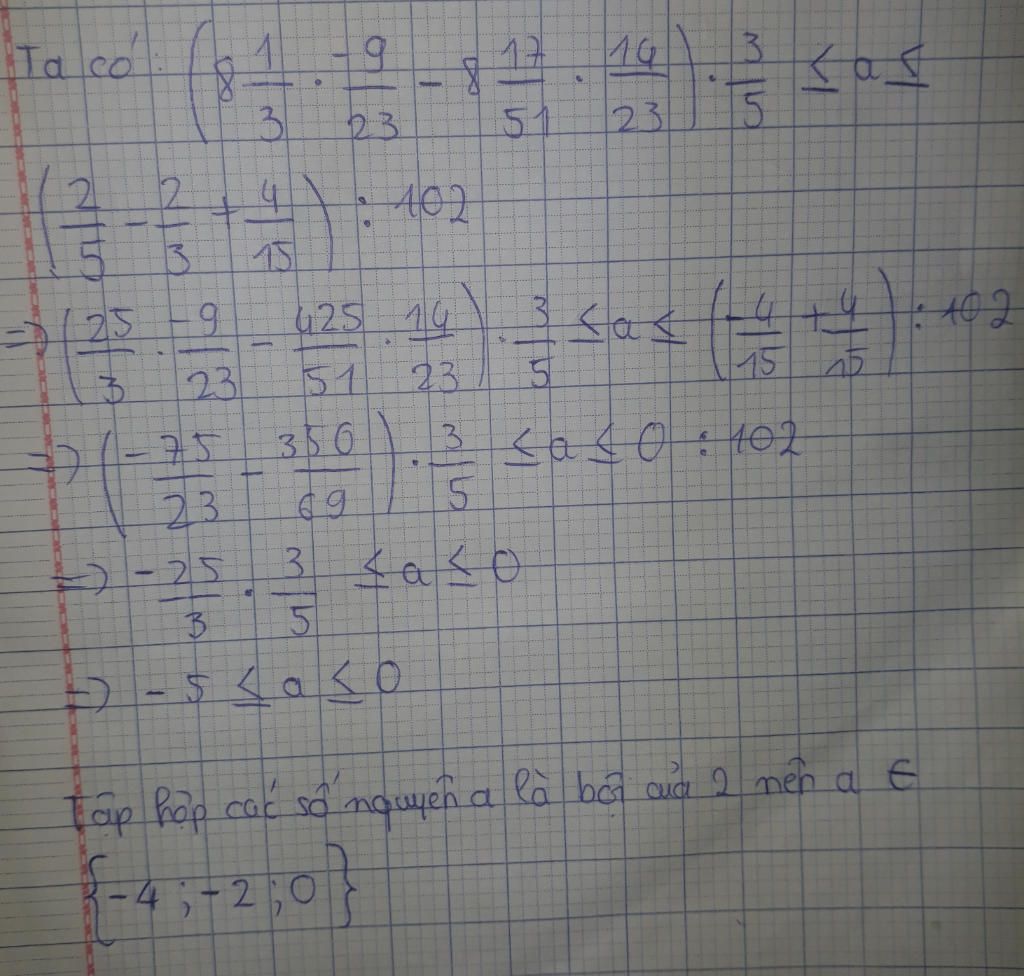 Ta có: (8 1/3 · -9/23 - 8 17/51 · 14/23) · 3/5 ≤ a ≤
(2/5 - 2/3 + 4/15) : 102
=> (25/3 · -9/23 - 425/51 · 14/23) · 3/5 ≤ a ≤ (-4/15 + 4/15) : 102
=> (-75/23 - 350/69) · 3/5 ≤ a ≤ 0 : 102
=> -25/3 · 3/5 ≤ a ≤ 0
=> -5 ≤ a ≤ 0
Tập hợp các số nguyên a là bội của 2 nên a ∈
{-4 ; -2 ; 0}